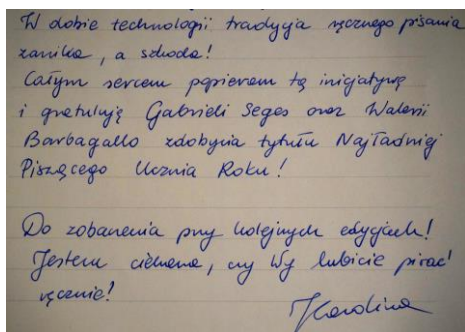 W dobie technologii tradycja ręcznego pisania
zanika, a szkoda!
Całym sercem popieram tą inicjatywę
i gratuluję Gabrieli Seges oraz Walerii
Barbagallo zdobycia tytułu Najładniej
Piszącego Ucznia Roku!
Do zobaczenia przy kolejnych edycjach!
Jestem ciekawa, czy Wy lubicie pisać
ręcznie!
Karolina